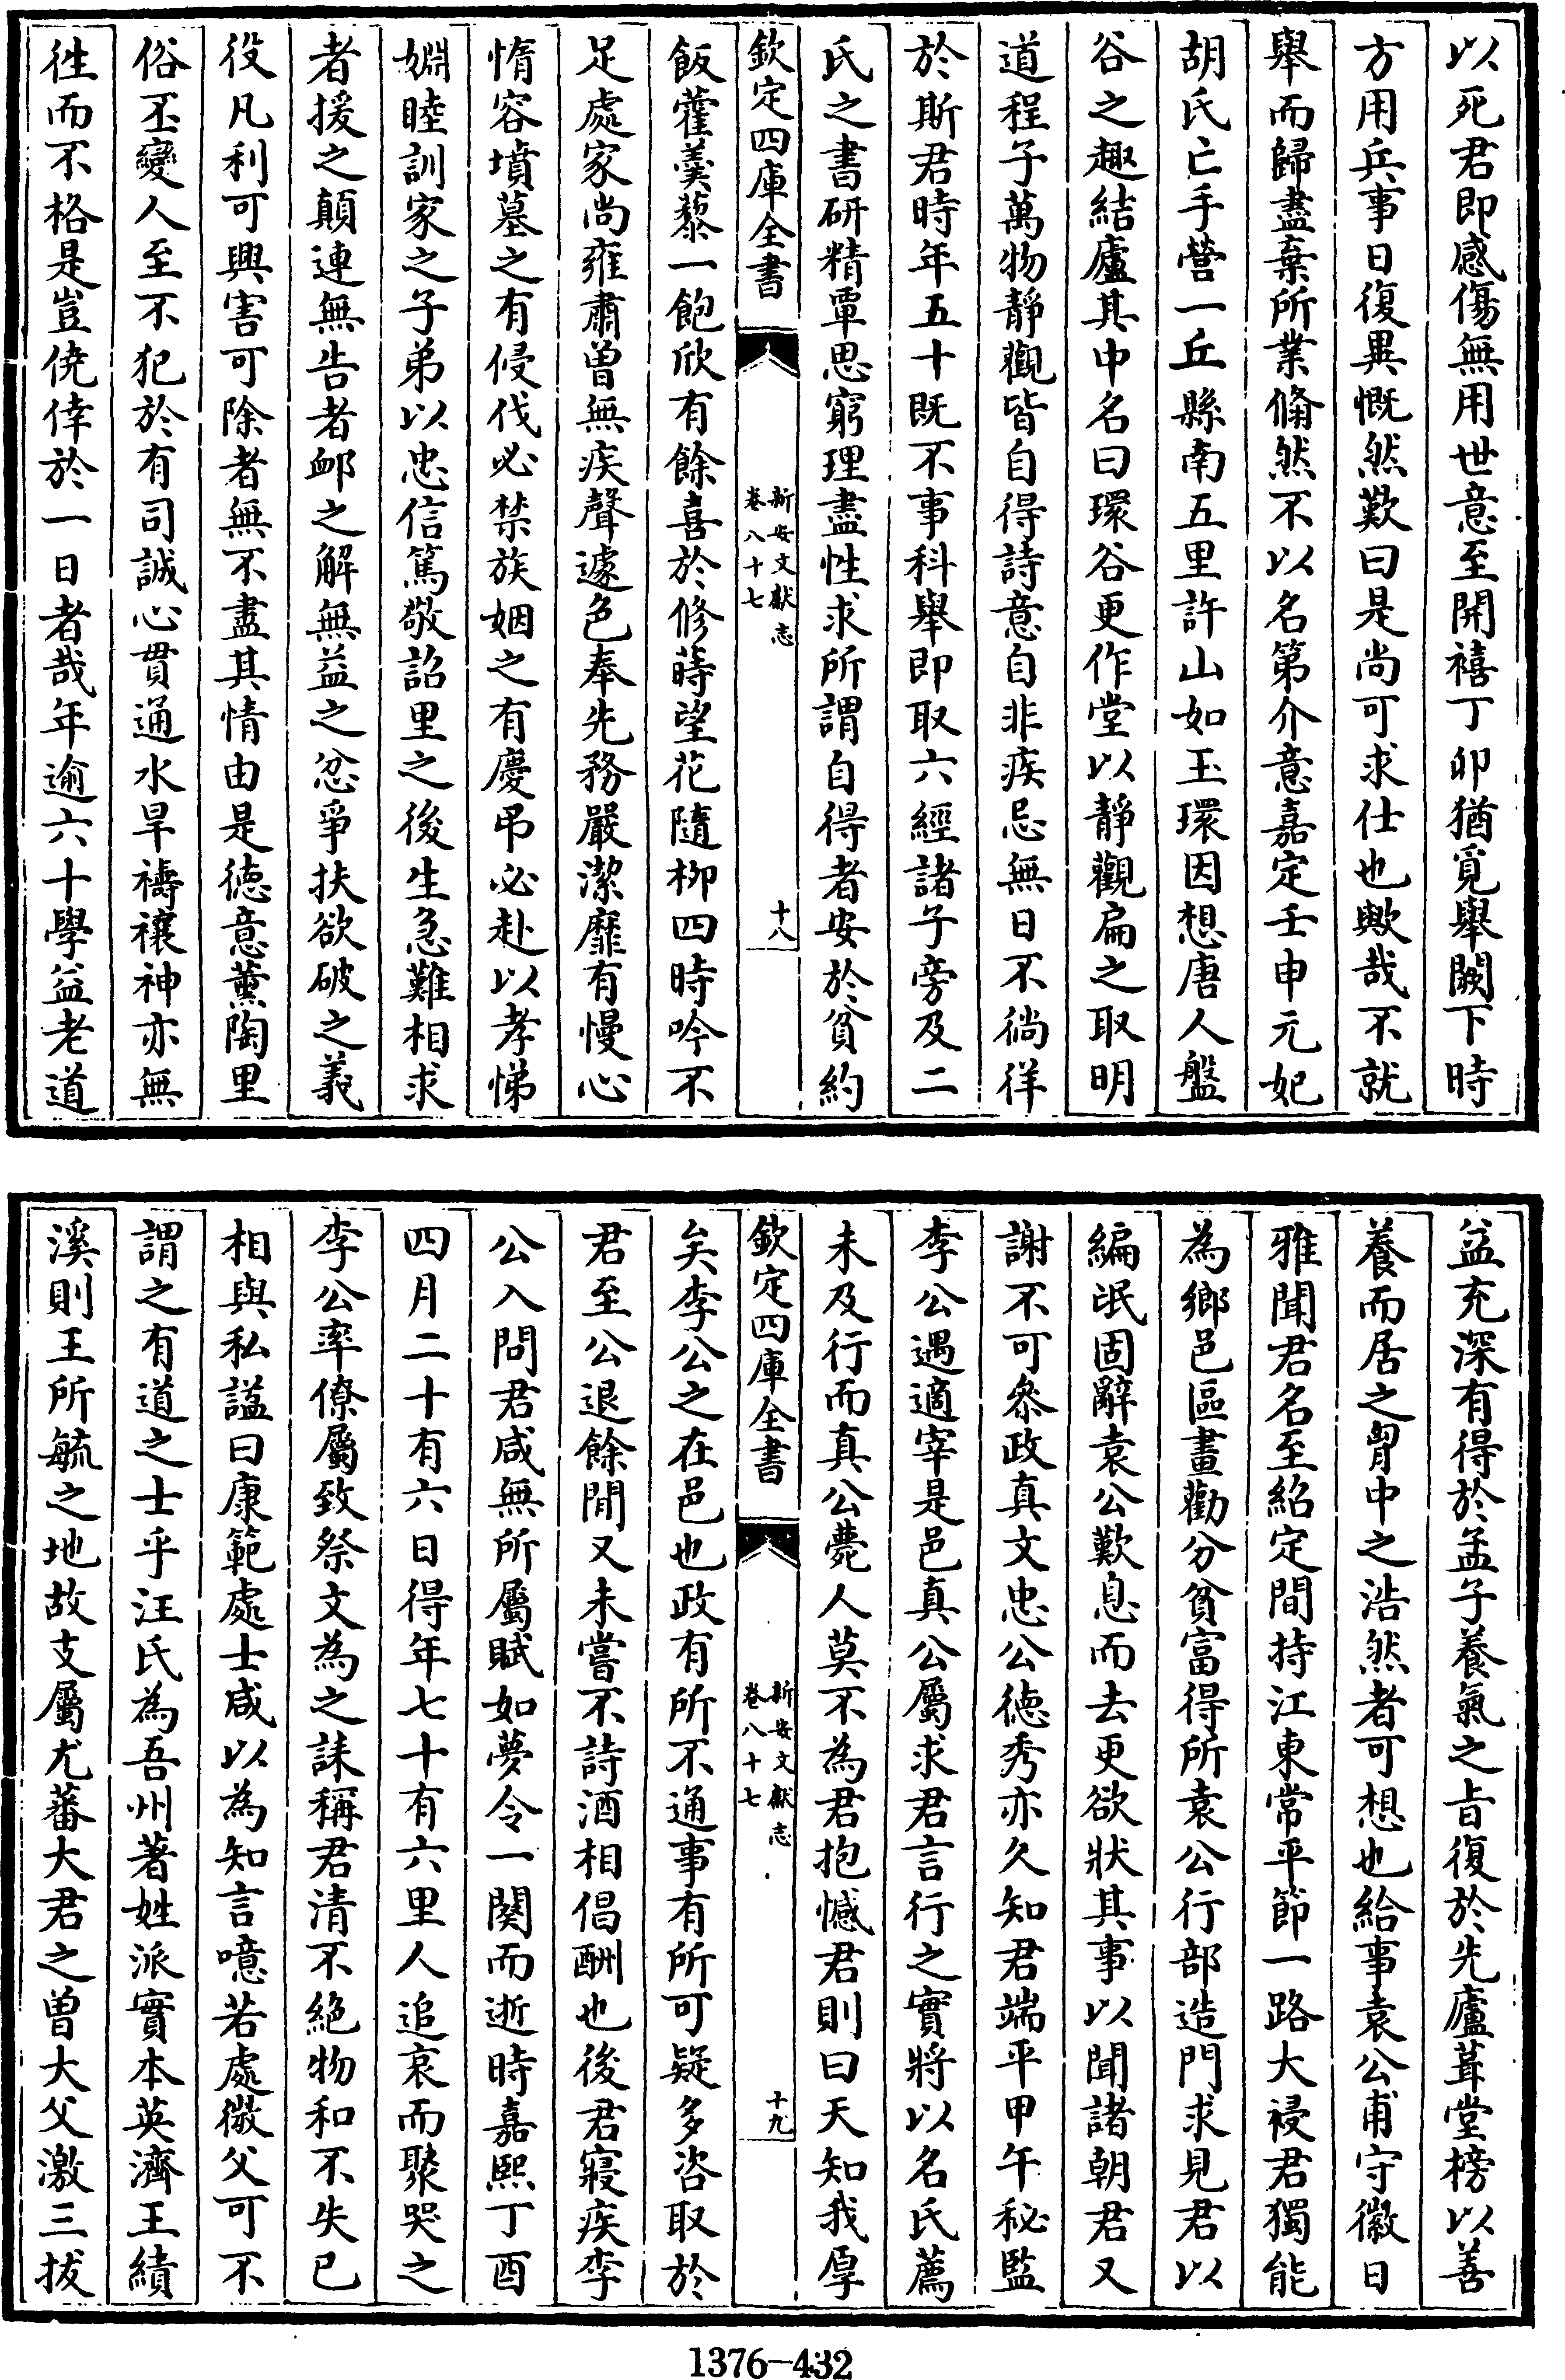 以死君即感傷無用世意至開禧丁卯猶覓舉闕下時
方用兵事日復異慨然歎曰是尚可求仕也歟哉不就
舉而歸盡棄所業翛然不以名第介意嘉定壬申元妃
胡氏亡手營一丘縣南五里許山如玉環因想唐人盤
谷之趣結廬其中名曰環谷更作堂以靜觀扁之取明
道程子萬物靜觀皆自得詩意自非疾忌無日不徜徉
於斯君時年五十既不事科舉即取六經諸子旁及二
氏之書研精覃思窮理盡性求所謂自得者安於貧約
欽定四庫全書
新安文獻志
卷八十七
十八
飯藿羹藜一飽欣有餘喜於修蒔望花隨柳四時吟不
足處家尚雍肅曽無疾聲遽色奉先務嚴潔靡有慢心
惰容墳墓之有侵伐必禁族姻之有慶弔必赴以孝悌
婣睦訓家之子弟以忠信篤敬詔里之後生急難相求
者援之顛連無告者䘏之解無益之忿爭扶欲破之義
役凡利可興害可除者無不盡其情由是徳意薰陶里
俗丕變人至不犯於有司誠心貫通水旱禱禳神亦無
徃而不格是豈僥倖於一日者哉年逾六十學益老道
益充深有得於孟子養氣之㫖復於先廬葺堂榜以善
養而居之胷中之浩然者可想也給事袁公甫守徽日
雅聞君名至紹定間持江東常平節一路大祲君獨能
為鄉邑區畫勸分貧富得所袁公行部造門求見君以
編氓固辭袁公歎息而去更欲狀其事以聞諸朝君又
謝不可叅政真文忠公德秀亦久知君端平甲午秘監
李公遇適宰是邑真公屬求君言行之實將以名氏薦
未及行而真公薨人莫不為君抱憾君則曰天知我厚
欽定四庫全書
新安文獻志
卷八十七
十九
矣李公之在邑也政有所不通事有所可疑多咨取於
君至公退餘閒又未嘗不詩酒相倡酬也後君寢疾李
公入問君咸無所屬賦如夢令一闋而逝時嘉熙丁酉
四月二十有六日得年七十有六里人追哀而聚哭之
李公率僚屬致祭文為之誄稱君清不絶物和不失已
相與私謚曰康範處士咸以為知言噫若處㣲父可不
謂之有道之士乎汪氏為吾州著姓派實本英濟王績
溪則王所毓之地故支屬尤蕃大君之曽大父激三拔
1376-432